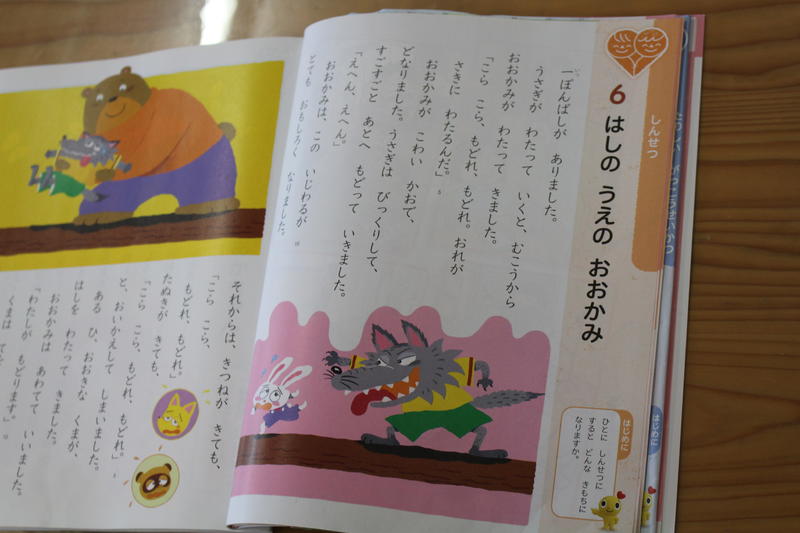 しんせつ
6 はしの うえの おおかみ
はじめに
ひとに しんせつに
すると どんな きもちに
なりますか。
一ぽんばしが ありました。
うさぎが わたって いくと、むこうから
おおかみが わたって きました。
「こら こら、もどれ、もどれ。おれが
さきに わたるんだ。」
おおかみが こわい かおで、
どなりました。うさぎは びっくりして、
すごすごと あとへ もどって いきました。
「えへん、えへん。」
おおかみは、この いじわるが
とても おもしろく なりました。
それからは、きつねが きても、
「こら こら、
もどれ、もどれ。」
たぬきが きても、
「こら こら、もどれ、もどれ。」
と、おいかえして しまいました。
ある ひ、おおきな くまが、
はしを わたって きました。
おおかみは あわてて いいました。
「わたしが もどります。」
くまは
はじめに